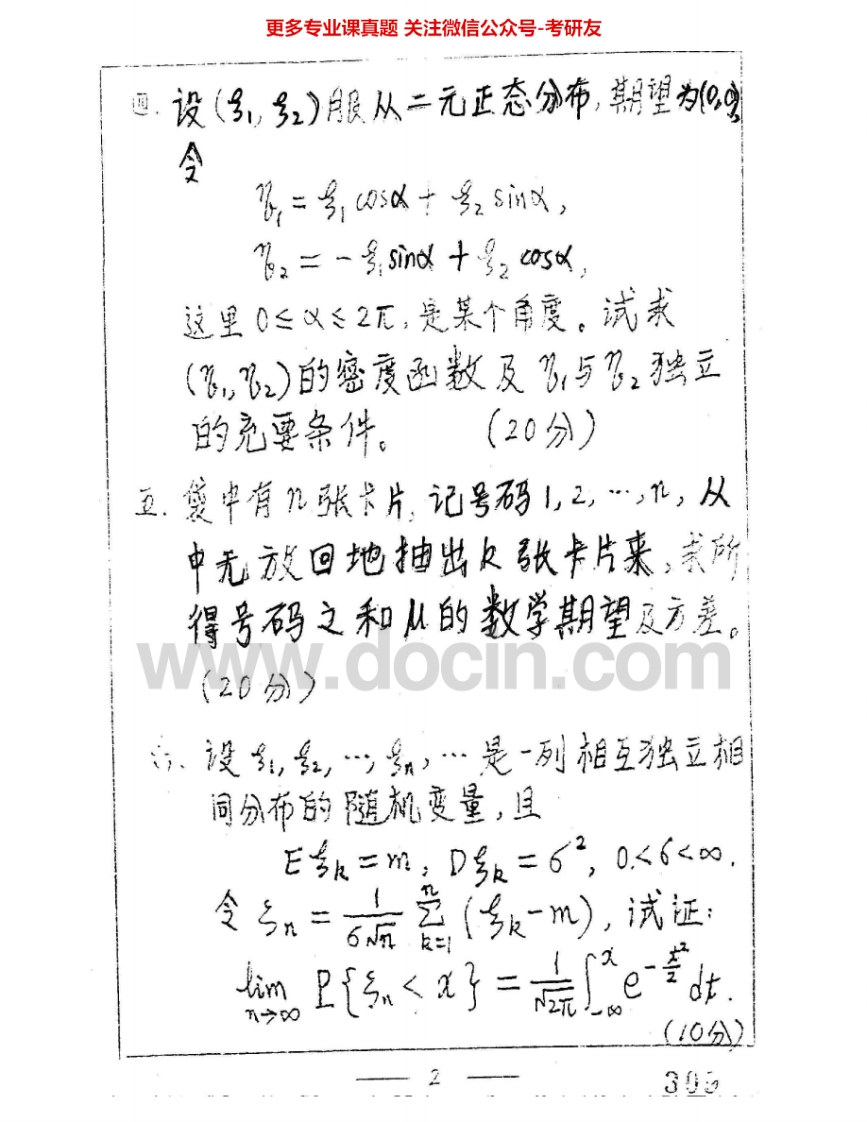 更多专业课真题 关注微信公众号-考研友
四. 设(ξ₁, ξ₂)服从二元正态分布,期望为(0,0),
令
η₁ = ξ₁cosα + ξ₂ sinα,
η₂ = -ξ₁sinα + ξ₂ cosα,
这里 0≤α≤2π,是某个角度。试求
(η₁,η₂)的密度函数及η₁与η₂独立
的充要条件。 (20分)
五. 袋中有n张卡片,记号码1,2,…,n,从
中无放回地抽出k张卡片来,求所
得号码之和μ的数学期望及方差。
www.docin.com
(20分)
六、设ξ₁,ξ₂,…,ξₙ,…是一列相互独立相
同分布的随机变量,且
Eξₖ = m, Dξₖ = σ², 0<σ<∞.
令 ζₙ = 1/(σ√n) ∑ₖ₌₁ⁿ (ξₖ-m),试证:
lim n→∞ P{ζₙ < x} = 1/√2π ∫₋∞ˣ e^(-t²/2) dt.
(10分)
— 2 —
305